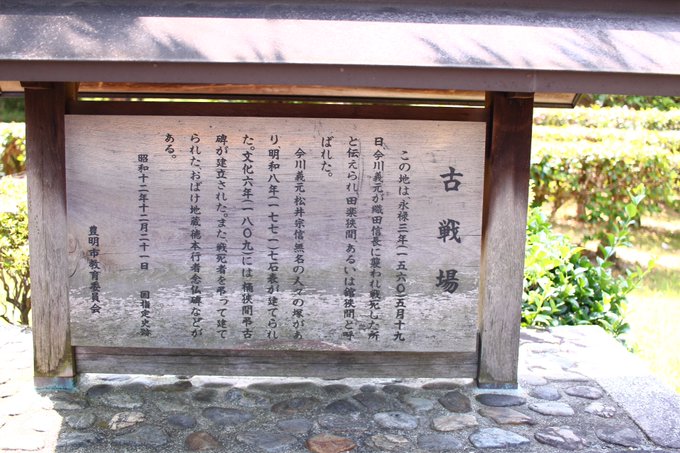 古戦場
この地は、永禄三年(一五六〇)五月十九
日今川義元が織田信長に襲われ戦死した所
と伝えられ、田楽狭間、あるいは桶狭間と呼
ばれた。
今川義元、松井宗信、無名の人々の塚があ
り、明和八年(一七七一)七石表が建てられ
た。文化六年(一八〇九)には桶狭間弔古
碑が建立された。また、戦死者を弔って建て
られた、おばけ地蔵徳本行者念仏碑などが
ある。
昭和十二年十二月二十一日 国指定史跡
豊明市教育委員会